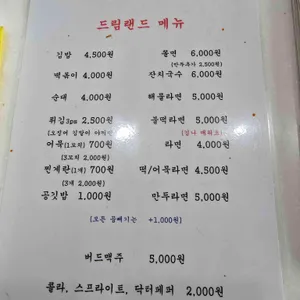 드림랜드 메뉴
김밥 4,500원 쫄면 6,000원
(만두추가 2,500원)
떡볶이 4,000원 잔치국수 6,000원
순대 4,000원 해물라면 5,000원
튀김3ps 2,500원 불떡라면 5,000원
(오징어 김말이 야끼만두)
어묵(1꼬치) 700원 라면 4,000원
(3꼬치 2,000원)
찐계란(1개) 700원 떡/어묵라면 4,500원
(3개 2,000원)
공깃밥 1,000원 만두라면 5,000원
(모든 곱빼기는 +1,000원)
버드맥주 5,000원
콜라, 스프라이트, 닥터페퍼 2,000원